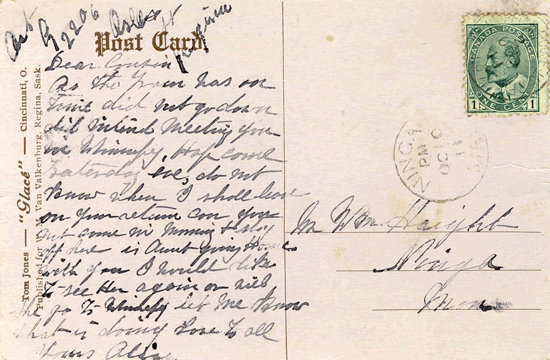 Apt G 2206
Post Card
Regina
Dear Cousin
As the train was on
time did not go down
did intend meeting you
in Winnipeg Hop come
Saturday eve, do not
know when I shall leave
on your return can you
not come in morning & stay
off here is Aunt going Home
with you I would like
to see Her again or will
she go to Winnipeg let me know
what is doing Love to all
Yours
Tom Jones — "Glacé" — Cincinnati, O.
Published for W. M. Van Valkenburg, Regina, Sask.
CANADA POSTAGE
1 1
ONE CENT
NINGA
PM
OC 10
11
MAN
Mr Wm. Haight
Ninga
Man